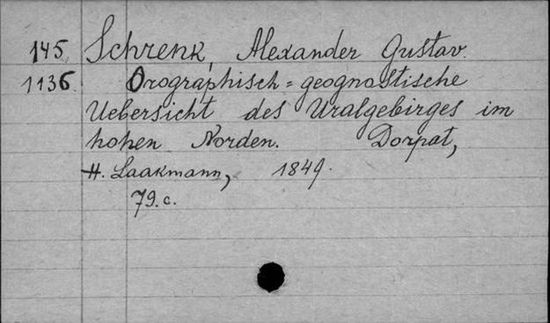 145 Schrenk, Alexander Gustav.
1136 Orographisch=geognostische
Uebersicht des Uralgebirges im
hohen Norden. Dorpat,
H. Laakmann, 1849.
79.c.